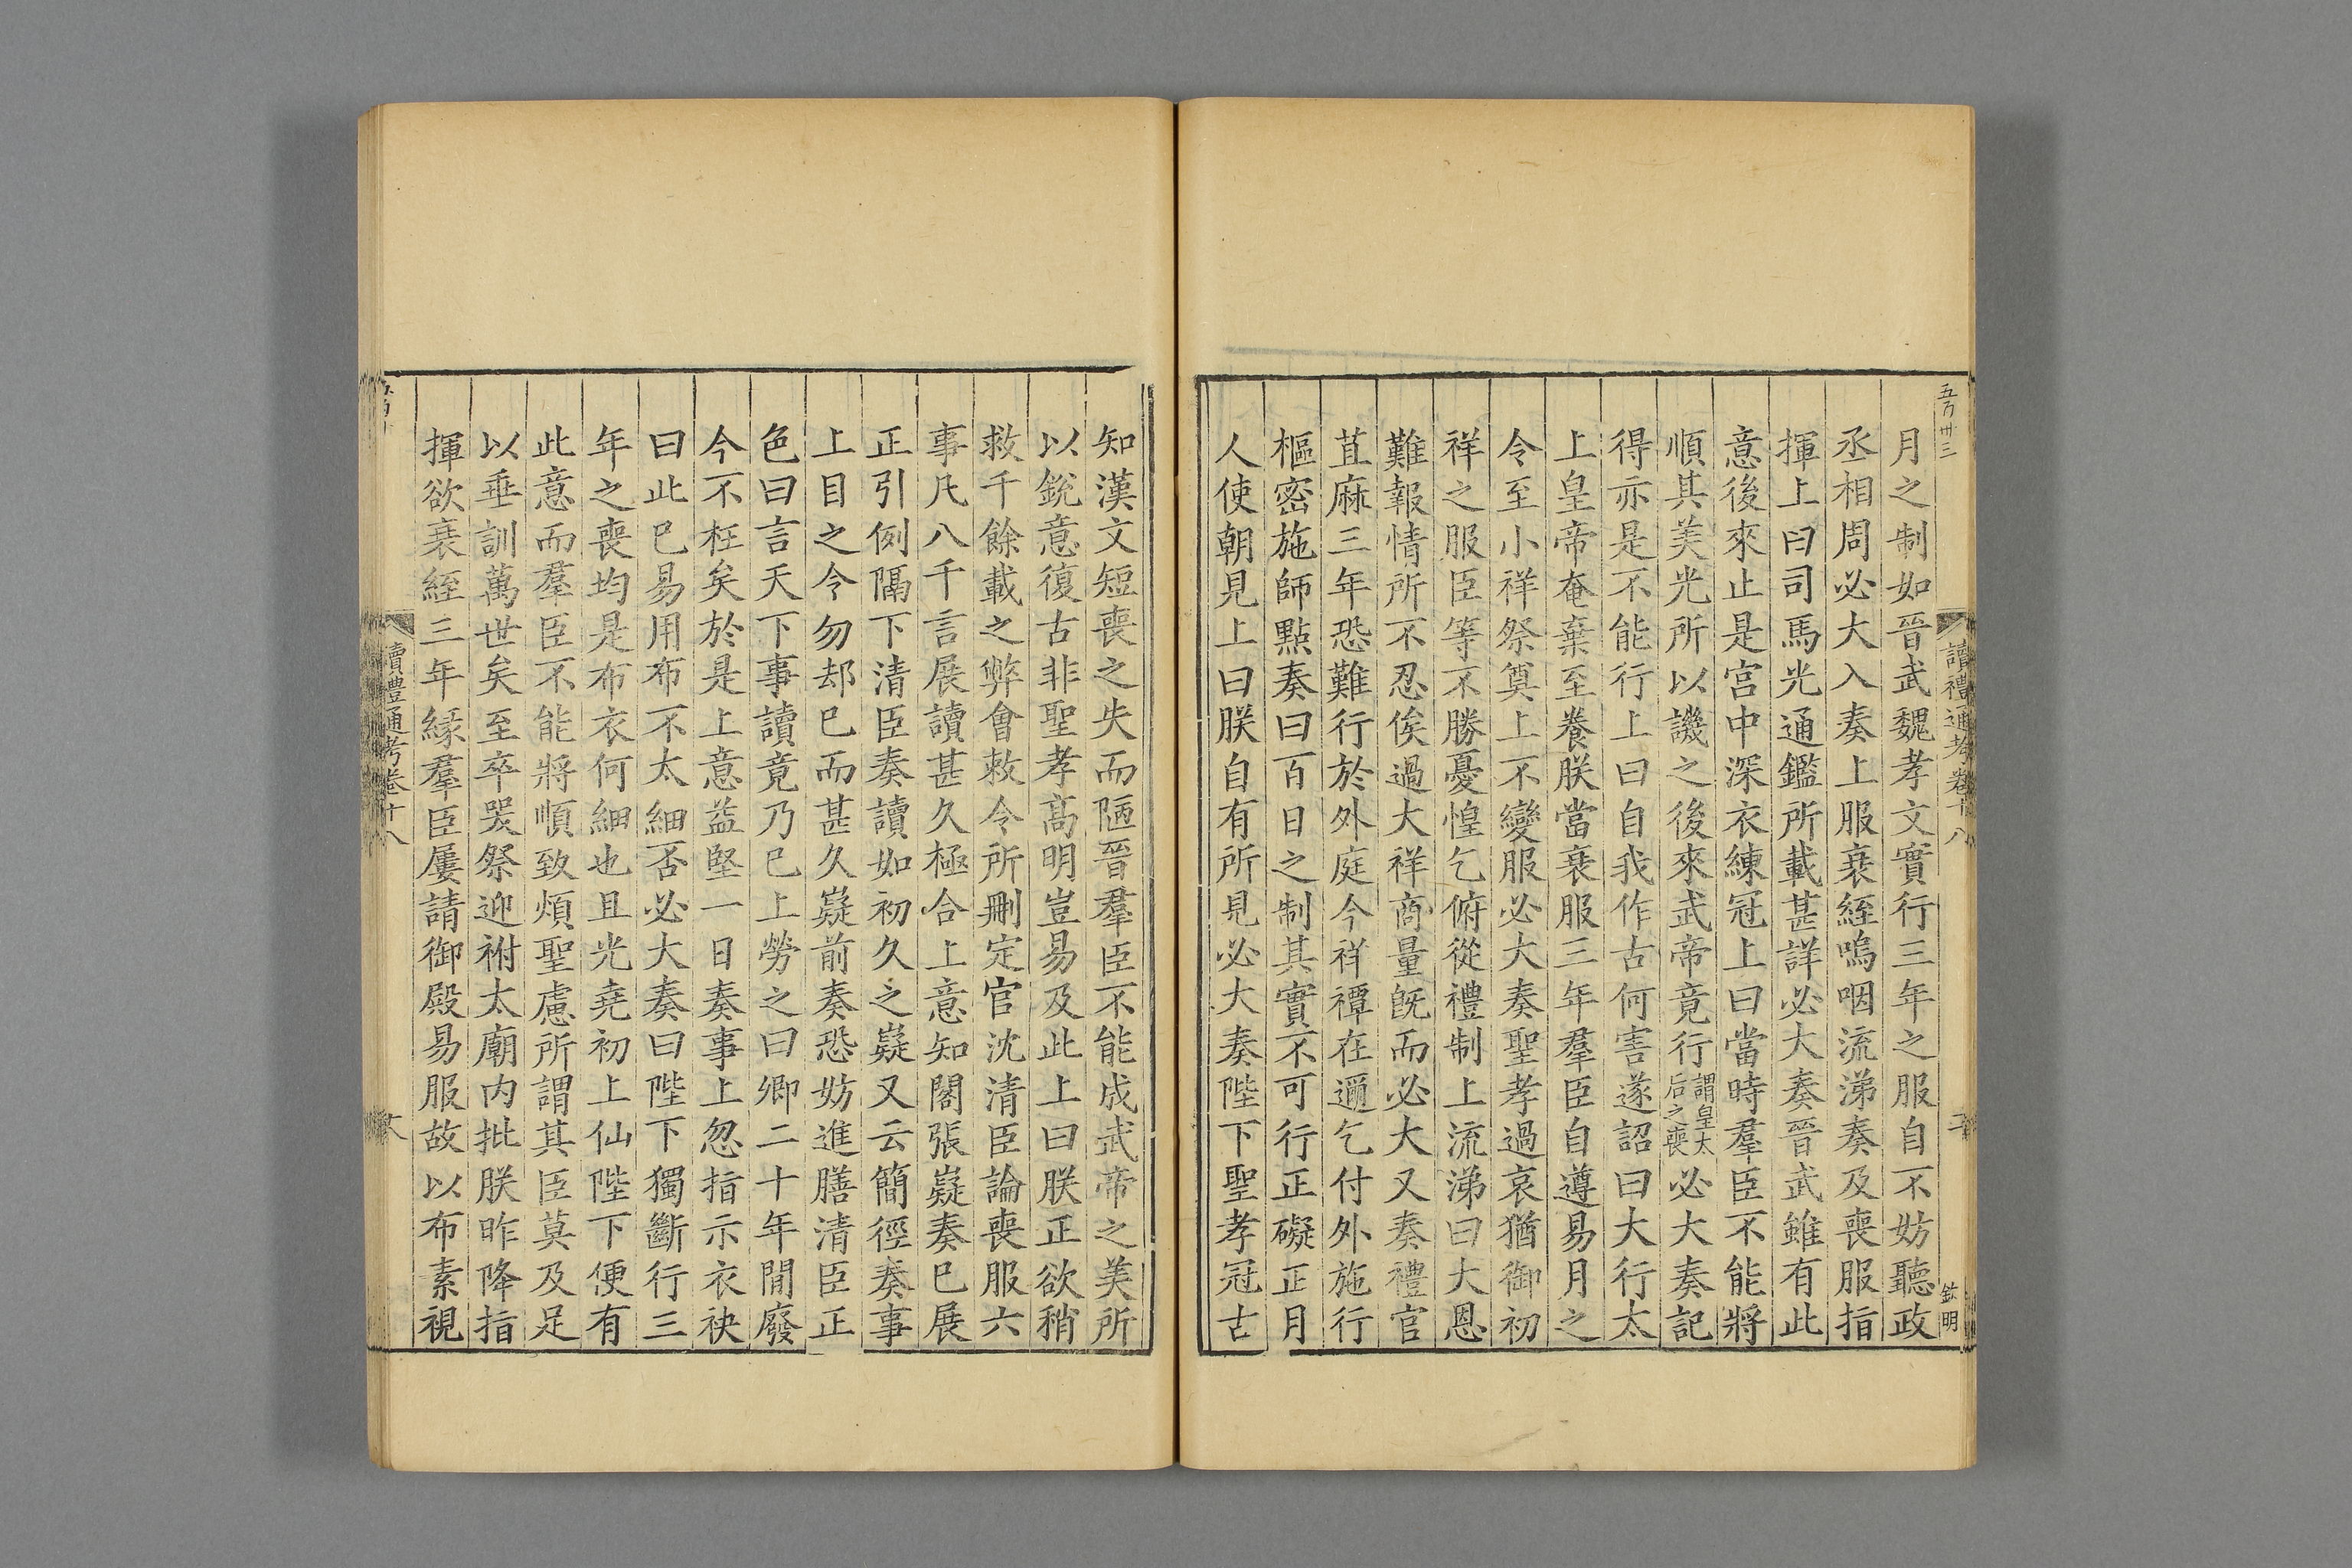 讀禮通考卷十八
月之制如晉武魏孝文實行三年之服自不妨聽政
丞相周必大入奏上服衰絰嗚咽流涕奏及喪服指
揮上曰司馬光通鑑所載甚詳必大奏晉武雖有此
意後來止是宮中深衣練冠上曰當時羣臣不能將
順其美光所以譏之後來武帝竟行謂皇太后之喪必大奏記
得亦是不能行上曰自我作古何害遂詔曰大行太
上皇帝奄棄至養朕當衰服三年羣臣自遵易月之
令至小祥祭奠上不變服必大奏聖孝過哀猶御初
祥之服臣等不勝憂惶乞俯從禮制上流涕曰大恩
難報情所不忍俟過大祥商量旣而必大又奏禮官
苴麻三年恐難行於外庭今祥禫在邇乞付外施行
樞密施師點奏曰百日之制其實不可行正礙正月
人使朝見上曰朕自有所見必大奏陛下聖孝冠古
知漢文短喪之失而陋晉羣臣不能成武帝之美所
以銳意復古非聖孝高明豈易及此上曰朕正欲稍
救千餘載之弊會敕令所刪定官沈清臣論喪服六
事凡八千言展讀甚久極合上意知閤張嶷奏已展
正引例隔下清臣奏讀如初久之嶷又云簡徑奏事
上目之令勿却已而甚久嶷前奏恐妨進膳清臣正
色曰言天下事讀竟乃已上勞之曰卿二十年閒廢
今不枉矣於是上意益堅一日奏事上忽指示衣袂
曰此已易用布不太細否必大奏曰陛下獨斷行三
年之喪均是布衣何細也且光堯初上仙陛下便有
此意而羣臣不能將順致煩聖慮所謂其臣莫及足
以垂訓萬世矣至卒哭祭迎祔太廟内批朕昨降指
揮欲衰絰三年緣羣臣屢請御殿易服故以布素視
讀禮通考卷十八